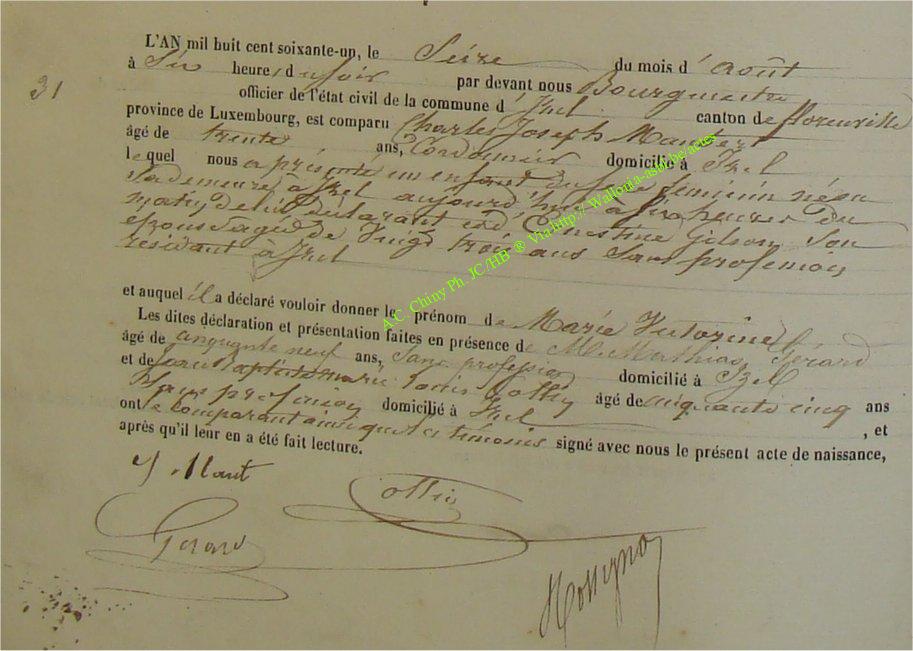 L'AN mil huit cent soixante-un, le Seize du mois d'août
31
à Six heures du Soir par devant nous Bourgmestre
officier de l'état civil de la commune d'Izel canton de florenville
province de Luxembourg, est comparu Charles Joseph
âgé de trente ans, Cordonnier domicilié à Izel
lequel nous a présenté un enfant du sexe féminin né en
Sa demeure à Izel aujourd'hui à six heures du
matin de lui déclarant et d'Ernestine Gilson Son
épouse âgée de Vingt trois ans Sans profession
résidant à Izel
A.C. Chiny Ph. JC/HB ® Via http:// Wallonia-asbl.be/actes
et auquel il a déclaré vouloir donner le prénom de Marie Victorine
Les dites déclaration et présentation faites en présence de M. Mathias Gérard
âgé de cinquante neuf ans, Sans profession domicilié à Izel
et de Jean Louis Collin âgé de cinquante cinq ans
Sans profession domicilié à Izel , et
ont le comparant ainsi que les témoins signé avec nous le présent acte de naissance,
après qu'il leur en a été fait lecture.
Collin
Gérard